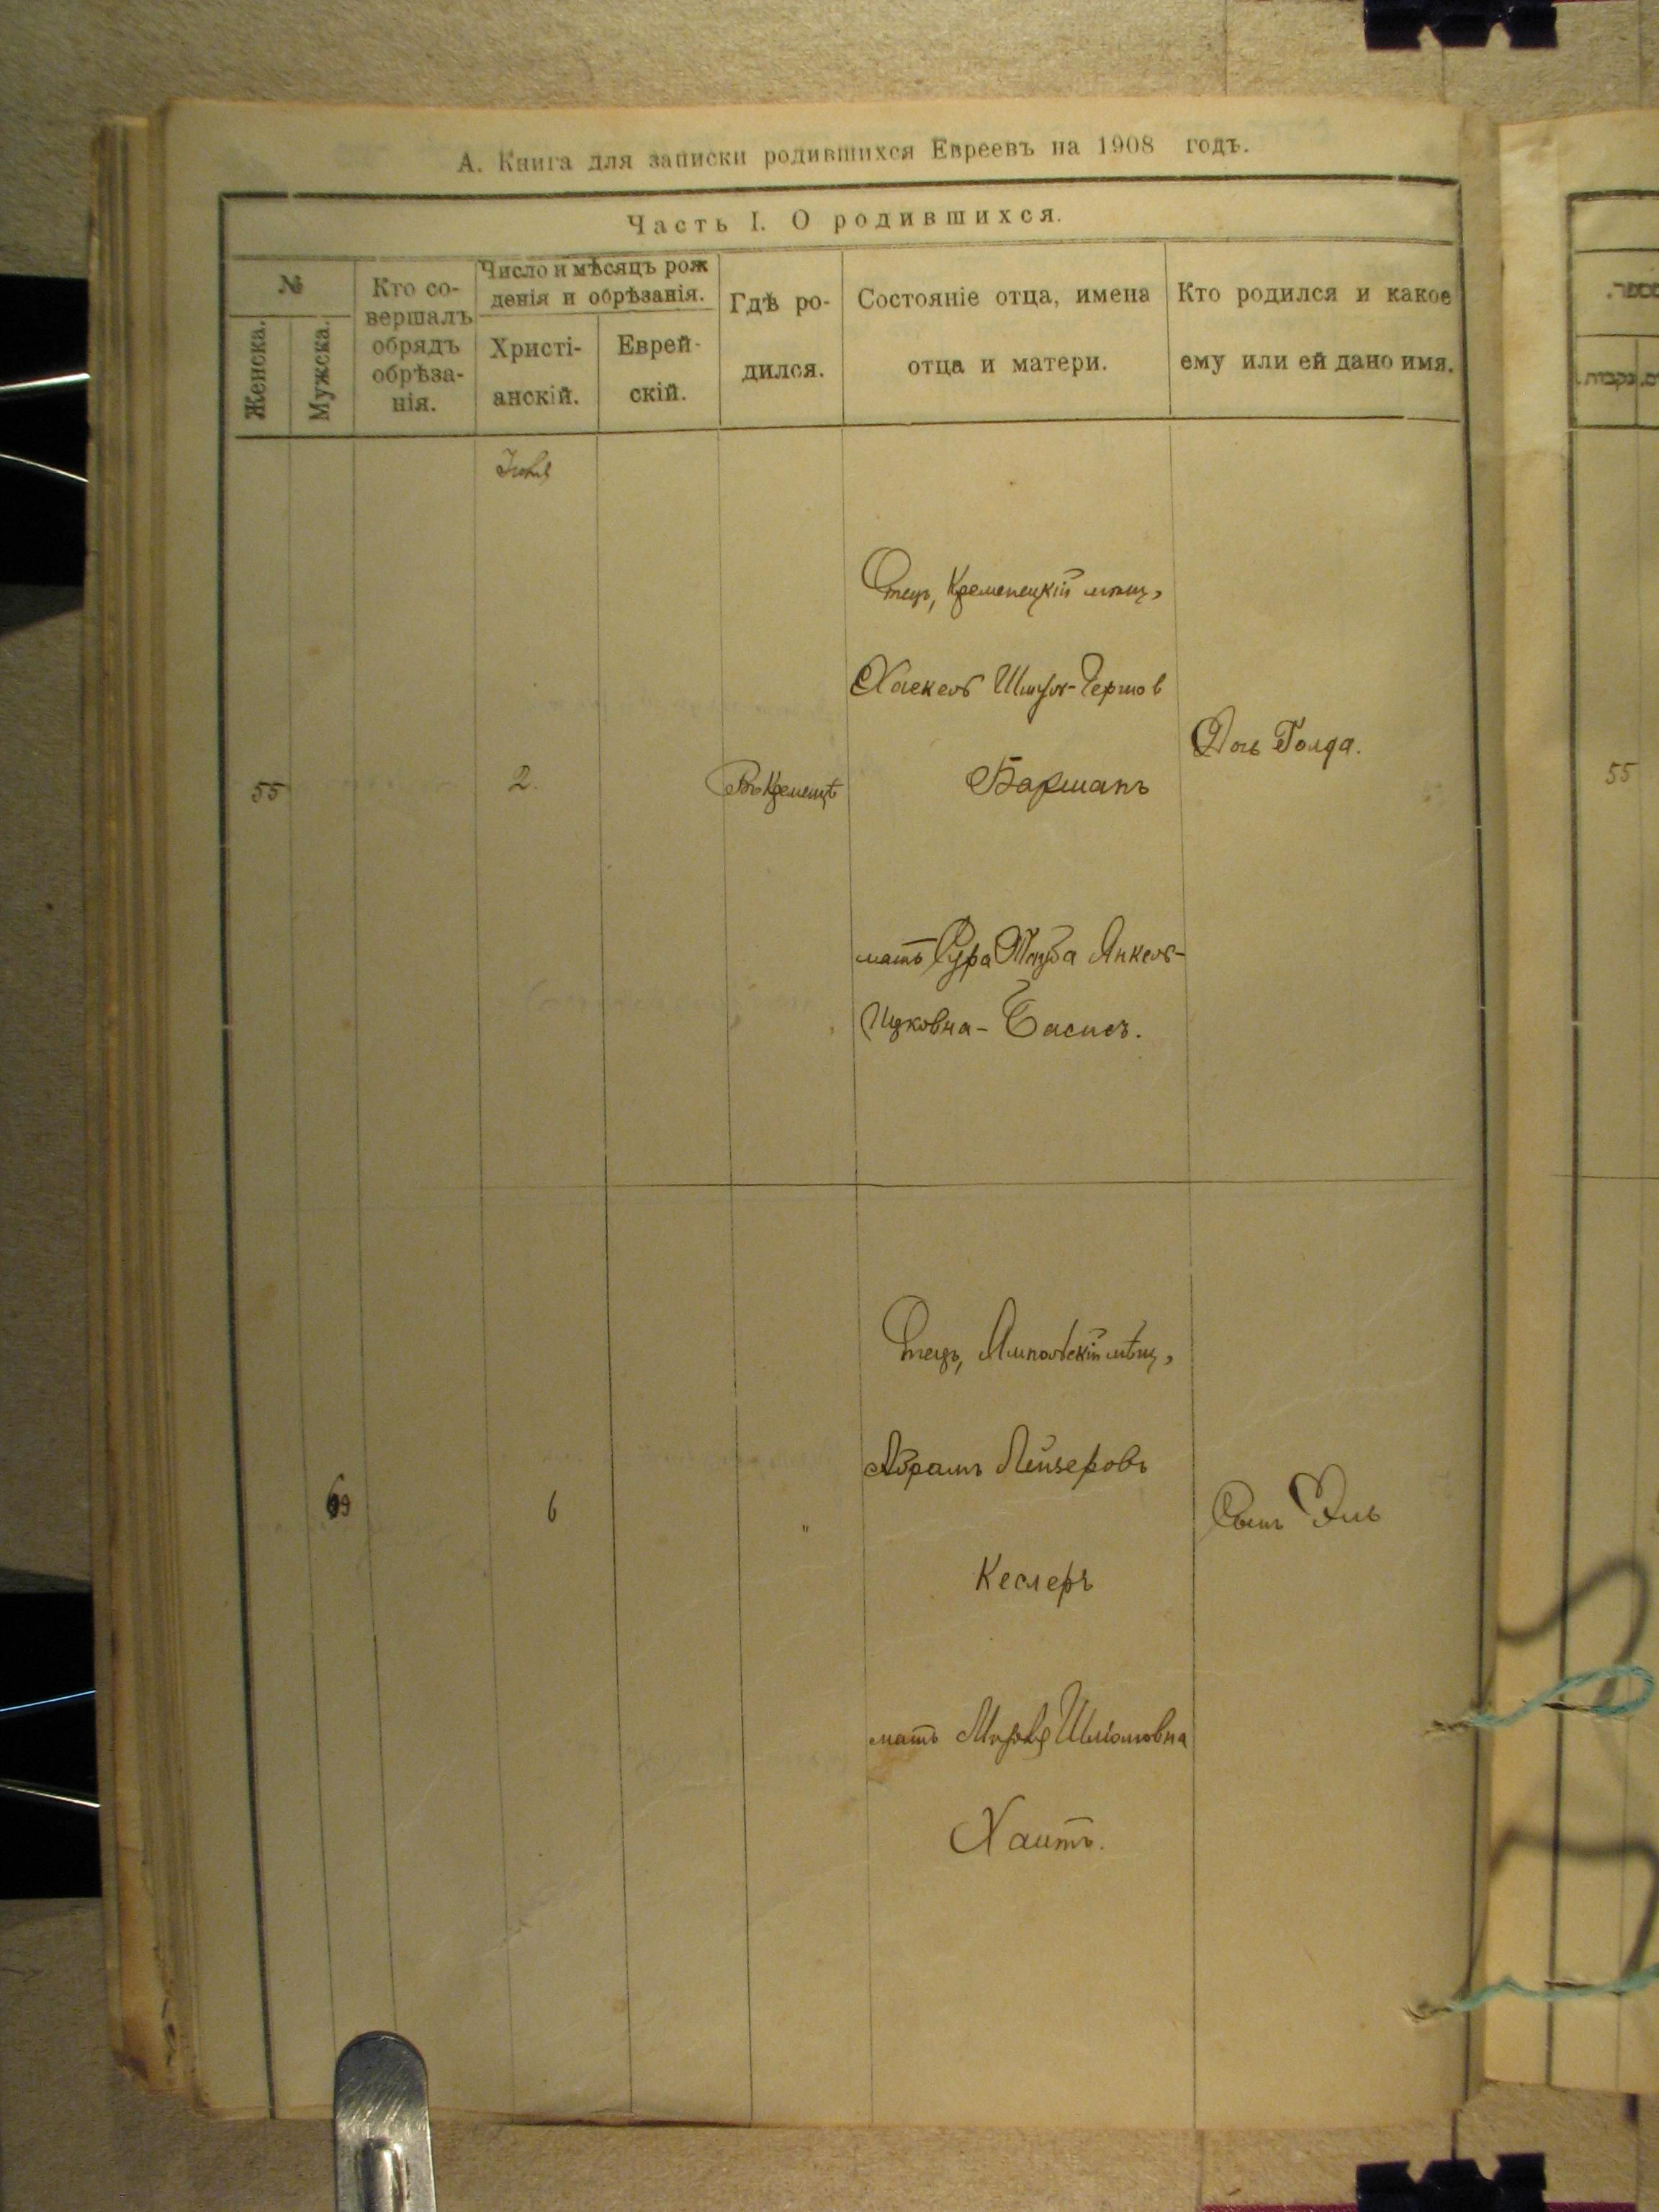 А. Книга для записки родившихся Евреевъ на 1908 годъ.
Часть I. О родившихся.
№
Женска.
Мужска.
Кто со-
вершалъ
обрядъ
обрѣза-
нія.
Число и мѣсяцъ рож
денія и обрѣзанія.
Христі-
анскій.
Еврей-
скій.
Гдѣ ро-
дился.
Состояніе отца, имена
отца и матери.
Кто родился и какое
ему или ей дано имя.
55
2.
Въ Кременцѣ
Отецъ, Кременецкій мѣщ,
Хаскель Шмуль-
Барманъ
мать Сура Тауба Янкель-
Ицковна - Басисъ.
Дочь Голда.
69
6
"
Отецъ, Ямпольскій мѣщ,
Абрамъ Лейзеровъ
Кеслеръ
мать Шлiомовна
Хаитъ.
Сынъ Эль
55